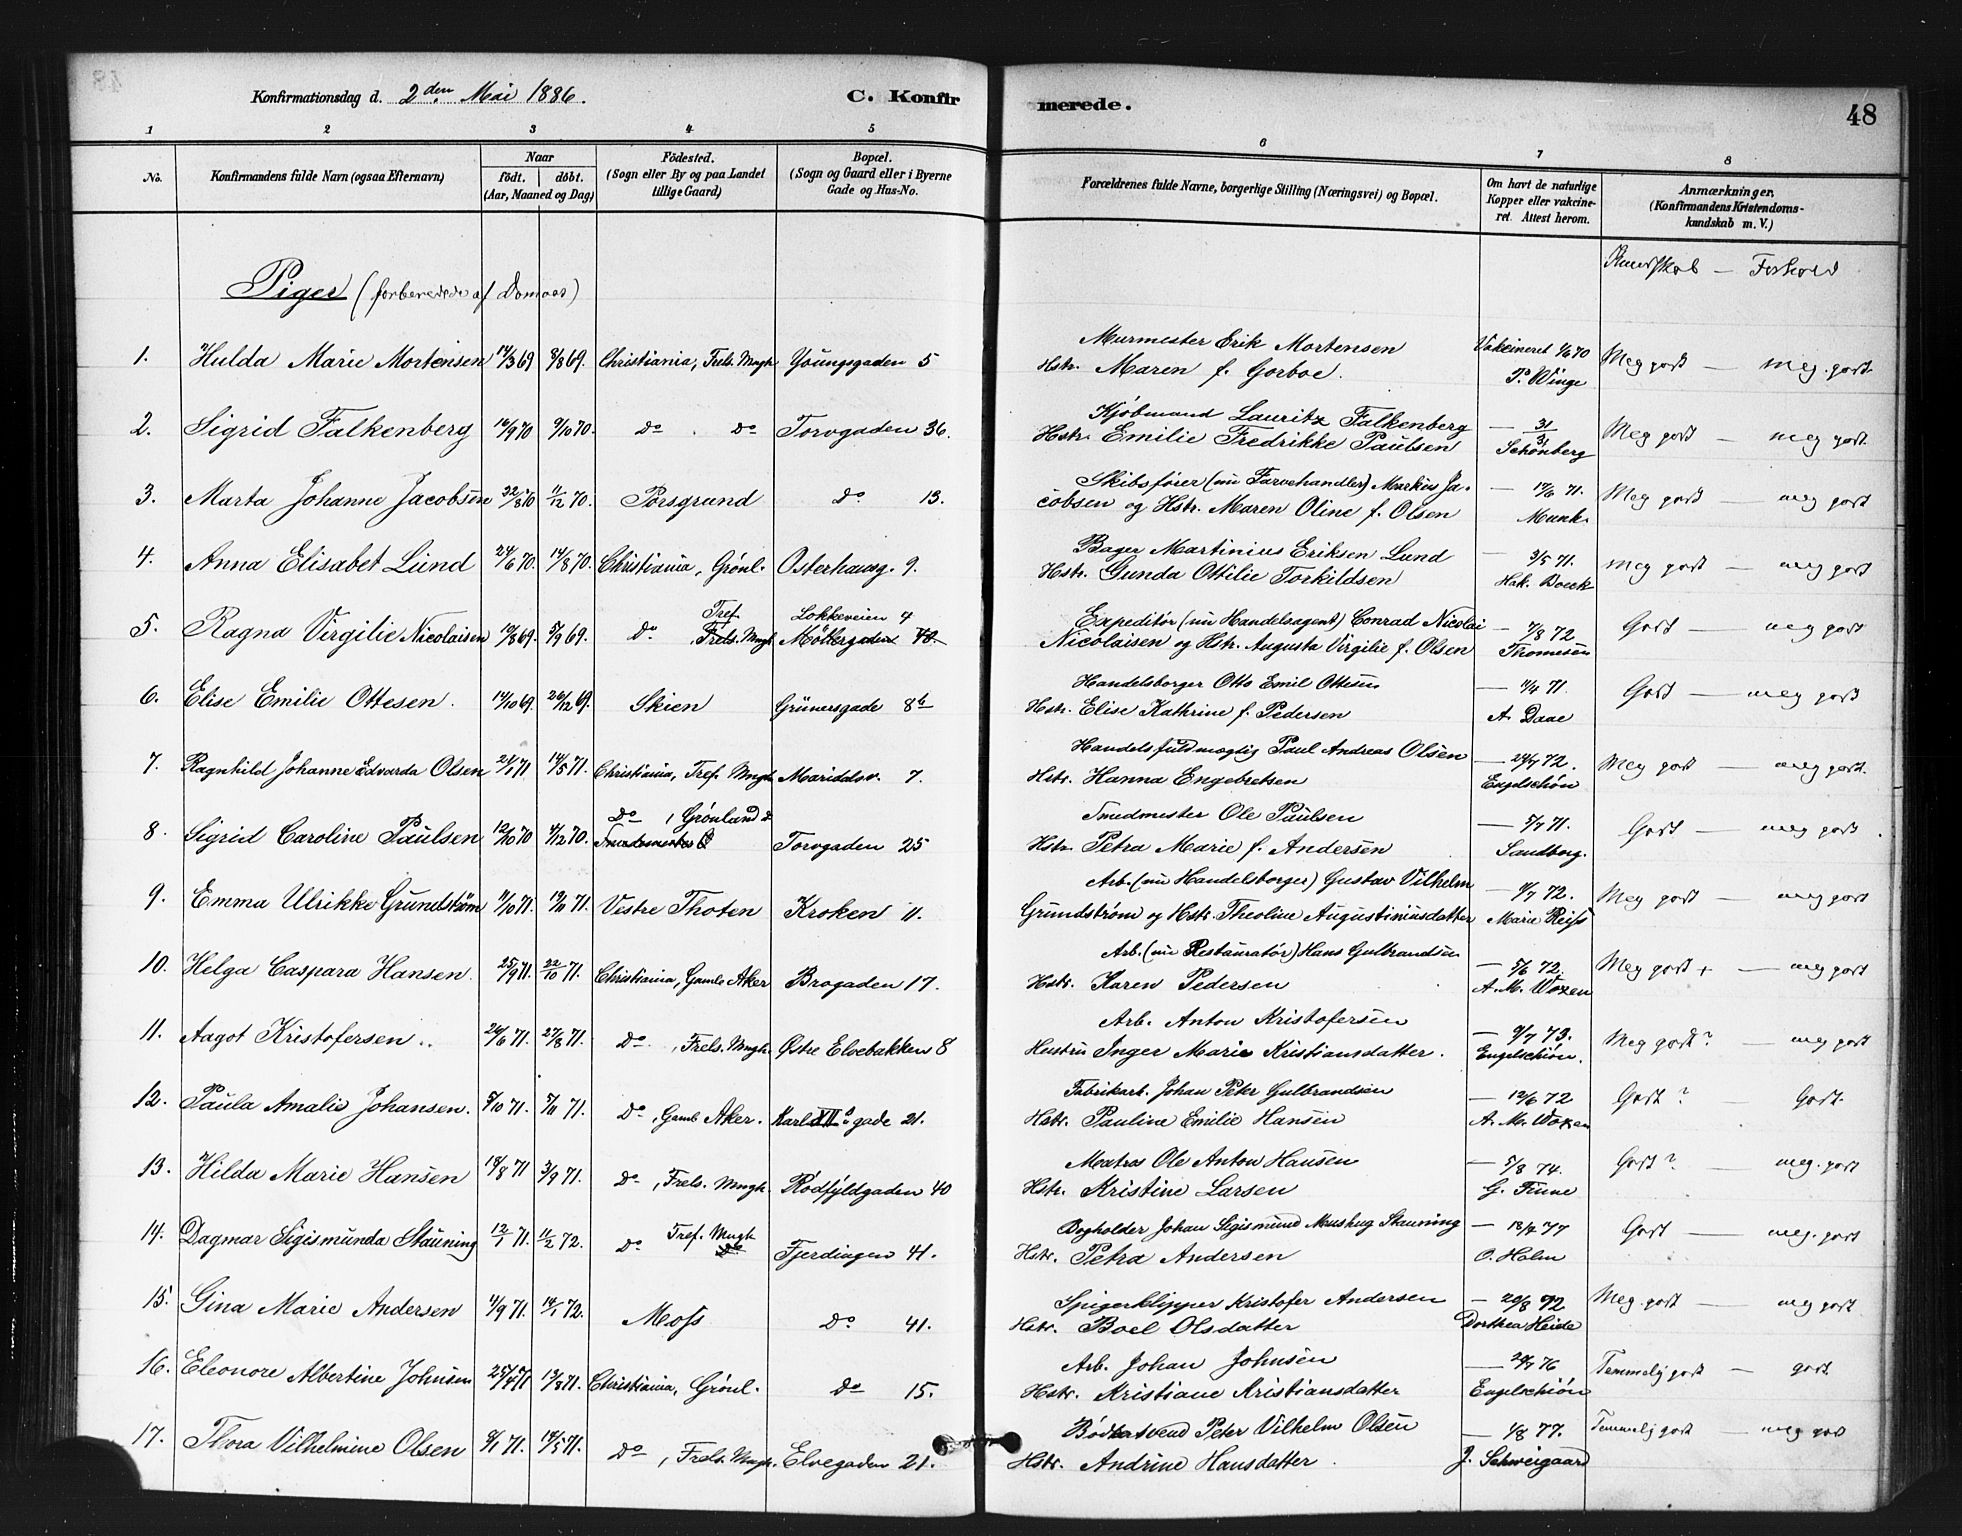 Konfirmationsdag d. 2den Mai 1886.
C. Konfirmerede.
48
1 2 3 4 5 6 7 8
No.
Konfirmandens fulde Navn (ogsaa Efternavn)
Naar
födt. döbt.
(Aar, Maaned og Dag)
Födested.
(Sogn eller By og paa Landet
tillige Gaard)
Bopæl.
(Sogn og Gaard eller i Byerne
Gade og Hus-No.
Forældrenes fulde Navne, borgerlige Stilling (Næringsvei) og Bopæl.
Om havt de naturlige
Kopper eller vakcine-
ret. Attest herom.
Anmærkninger.
(Konfirmandens Kristendoms-
kundskab m. V.)
Kundskab — Forhold
Piger (forberedede af Domaas)
1. Hulda Marie Mortensen 14/3 69 8/8 69. Christiania, Frels. Mngh. Youngsgaden 5
Murmester Erik Mortensen
Hstr. Maren f. Gorboe.
Vakcineret 1/6 70
P. Winge
Meg godt — meg. godt.
2. Sigrid Falkenberg 14/9 70 9/10 70. Do . Do Torvgaden 36.
Kjöbmand Lauritz Falkenberg
Hstr. Emilie Fredrikke Paulsen
Schönberg
Meg godt — meg godt.
3. Marta Johanne Jacobsen 22/8 70 11/12 70. Porsgrund Do 13.
Skibsförer (nu Farvehandler) Markus Ja-
cobsen og Hstr. Maren Oline f. Olsen
— 17/6 71.
Munk.
Meg godt — meg godt
4. Anna Elisabet Lund 24/6 70. 14/8 70. Christiania, Grönl. Osterhausg. 9.
Bager Martinius Eriksen Lund
Hstr. Gunda Ottilie Torkildsen
— 3/5 71.
Hak. Boeck
Meg godt — meg godt
5. Ragna Virgilie Nicolaisen 10/8 69. 5/9 69. Do Tref. Frels. Mngh. Lokkeveien 4 Möllergaden
Expeditör (nu Handelsagent) Conrad Nicolai
Nicolaisen og Hstr. Augusta Virgilie f. Olsen
— 7/8 72
Thomesen
Godt — meg godt
6. Elise Emilie Ottesen. 14/10 69. 26/12 69. Skien Grünersgade 8b
Handelsborger Otto Emil Ottesen
Hstr. Elise Kathrine f. Pedersen
— 1/4 71.
A. Daae
Godt — meg godt
7. Ragnhild Johanne Edvarda Olsen 21/1 71 14/5 71. Christiania, Tref. Mngh. Maridalsv. 7.
Handelsfuldmægtig Paul Andreas Olsen
Hstr. Hanna Engebretsen
— 24/7 72.
Engelschiön
Meg godt — meg godt.
8. Sigrid Caroline Paulsen 12/10 70 4/12 70. Do, Grönland Torvgaden 25
Smedmester Ole Paulsen
Hstr. Petra Marie f. Andersen
— 5/7 71.
Sandberg.
Godt — meg godt.
9. Emma Ulrikke Grundström 11/10 71. 19/11 71. Vestre Thoten Kroken 11.
Arb. (nu Handelsborger) Gustav Vilhelm
Grundström og Hstr. Theoline Augustiniusdatter
— 9/7 72.
Marie Reiss
Meg godt — meg godt
10. Helga Caspara Hansen. 25/9 71. 22/10 71. Christiania, Gamle Aker Brogaden 17.
Arb. (nu Restauratör) Hans Gulbrandsen
Hstr. Karen Pedersen
— 5/6 72.
A. M. Woxen
Meg godt + — meg godt
11. Aagot Kristofersen. 26/6 71. 27/8 71. Do, Frels. Mngh. Østre Elvebakken 8
Arb. Anton Kristofersen
Hustru Inger Marie Kristiansdatter.
— 9/7 73.
Engelschiön.
Meg godt? — meg godt
12. Paula Amalie Johansen. 8/10 71. 5/11 71. Do, Gaml Aker. Karl XIIs gade 21.
Fabrikarb. Johan Peter Gulbrandsen
Hstr. Pauline Emilie Hansen
— 12/6 72
A. M. Woxen
Godt? — Godt.
13. Hilda Marie Hansen 18/8 71 3/9 71. Do, Frels. Mngh. Rödfyldgaden 40
Matros Ole Anton Hansen
Hstr. Kristine Larsen
— 5/8 74.
G. Finne
Godt? — meg. godt
14. Dagmar Sigismunda Stauning 12/7 71. 11/2 72. Do Tref. Mngh Do Fjerdingen 41.
Bogholder Johan Sigismund Stauning
Hstr. Petra Andersen
— 18/7 77
O. Holm
Godt — meg. godt
15. Gina Marie Andersen 4/9 71. 14/1 72. Moss Do 41.
Spigerklipper Kristofer Andersen
Hstr. Boel Olsdatter
— 20/8 72
Dorthea Heide
Meg. godt — meg godt
16. Eleonore Albertine Johnsen 25/4 71 13/8 71. Christiania, Grönl. Do 15.
Arb. Johan Johnsen
Hstr. Kristiane Kristiansdatter
— 24/7 76
Engelschiön
Temmelig godt — godt.
17. Thora Vilhelmine Olsen 8/1 71. 18/5 71. Do, Frels. Mngh. Elvegaden 21.
Bödkersvend Peter Vilhelm Olsen
Hstr. Andrine Hansdatter.
— 1/8 77.
J. Schweigaard
Temmelig godt — meg god